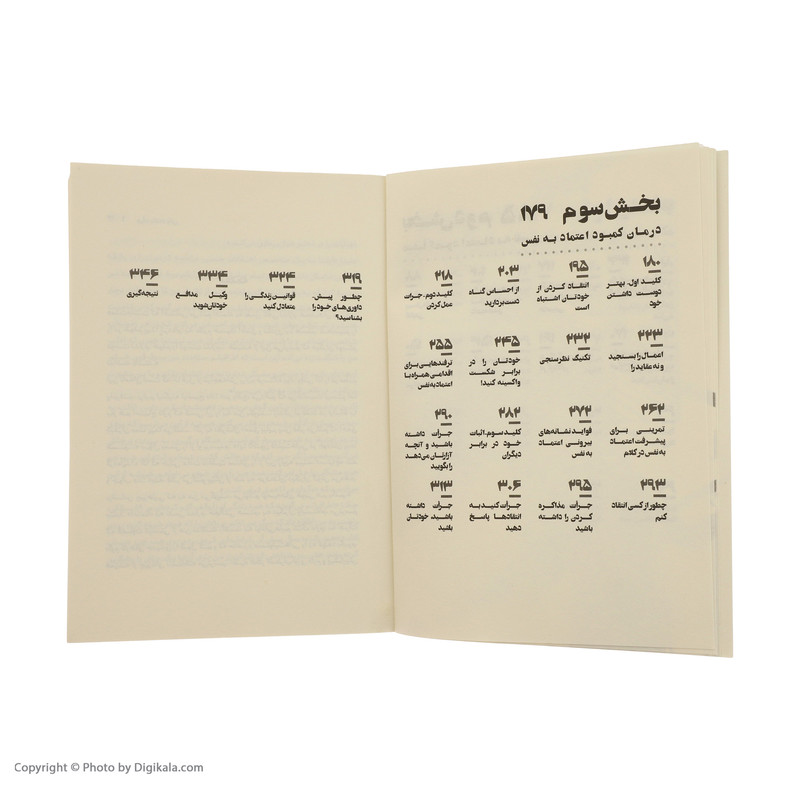 بخش سوم ۱۷۹
درمان کمبود اعتماد به نفس
۱۸۰
کلید اول. بهتر
دوست داشتن
خود
۱۹۵
انتقاد کردن از
خودتان اشتباه
است
۲۰۳
از احساس گناه
دست بردارید
۲۱۸
کلید دوم. جرات
عمل کردن
۲۲۳
اعمال را بسنجید
و نه عقاید را
۲۳۲
تکنیک نظرسنجی
۲۴۵
خودتان را در
برابر شکست
واکسینه کنید!
۲۵۵
ترفندهایی برای
اقدامی همراه با
اعتماد به نفس
۲۶۲
تمرینی برای
پیشرفت اعتماد
به نفس در کلام
۲۷۲
فواید نشانه‌های
بیرونی اعتماد
به نفس
۲۸۲
کلید سوم. اثبات
خود در برابر
دیگران
۲۹۰
جرأت داشته
باشید و آنچه
آزارتان می‌دهد
را بگویید
۲۹۳
چطور از کسی انتقاد
کنم
۲۹۵
جرأت مذاکره
کردن را داشته
باشید
۳۰۶
جرأت کنید به
انتقادها پاسخ
دهید
۳۱۳
جرأت داشته
باشید، خودتان
باشید
۳۱۹
چطور پیش.
داوری‌های خود را
بشناسید؟
۳۲۴
قوانین زندگی را
متعادل کنید
۳۳۴
وکیل مدافع
خودتان شوید
۳۴۶
نتیجه‌گیری
Copyright © Photo by Digikala.com